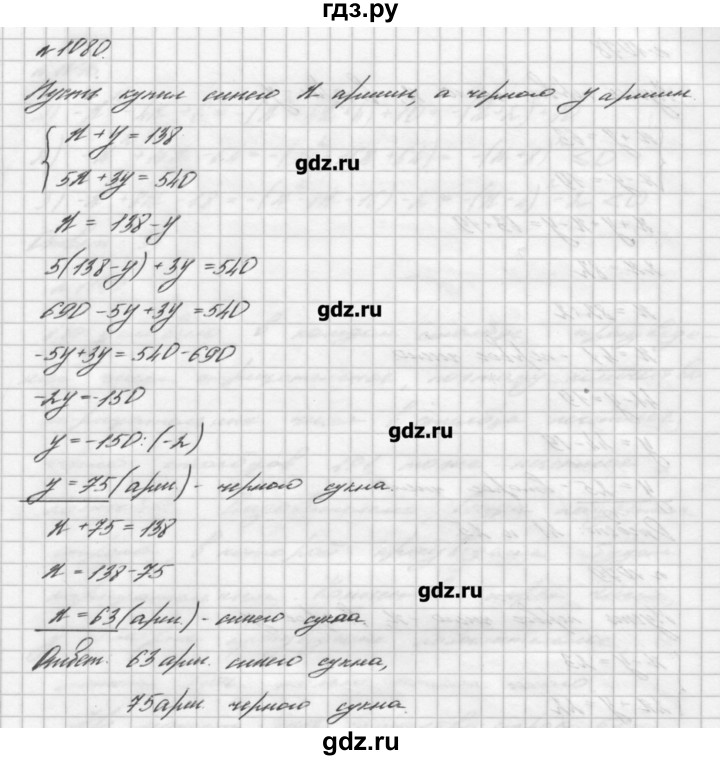 гдз.ру
№1080.
Пусть купил синего x аршин, а черного y аршин.
x + y = 138
gdz.ru
5x + 3y = 540
x = 138 - y
5(138 - y) + 3y = 540
690 - 5y + 3y = 540
gdz.ru
-5y + 3y = 540 - 690
-2y = -150
gdz.ru
y = -150 : (-2)
y = 75 (арш) - черного сукна.
x + 75 = 138
x = 138 - 75
gdz.ru
x = 63 (арш) - синего сукна
Ответ: 63 арш. синего сукна,
75 арш. черного сукна.
gdz.ru